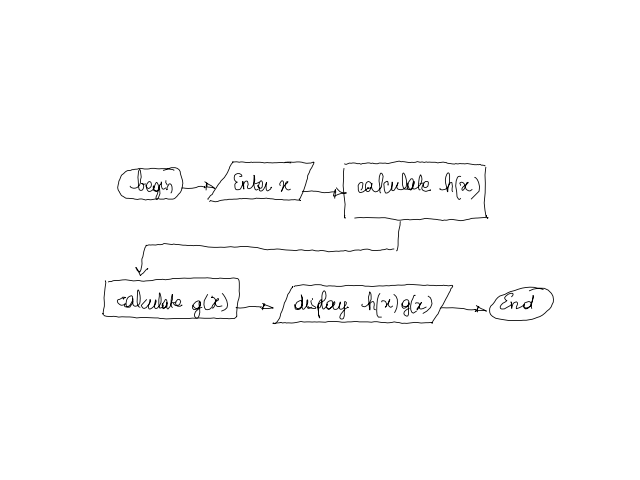 begin Enter x calculate h(x)
calculate g(x) display h(x)g(x) End